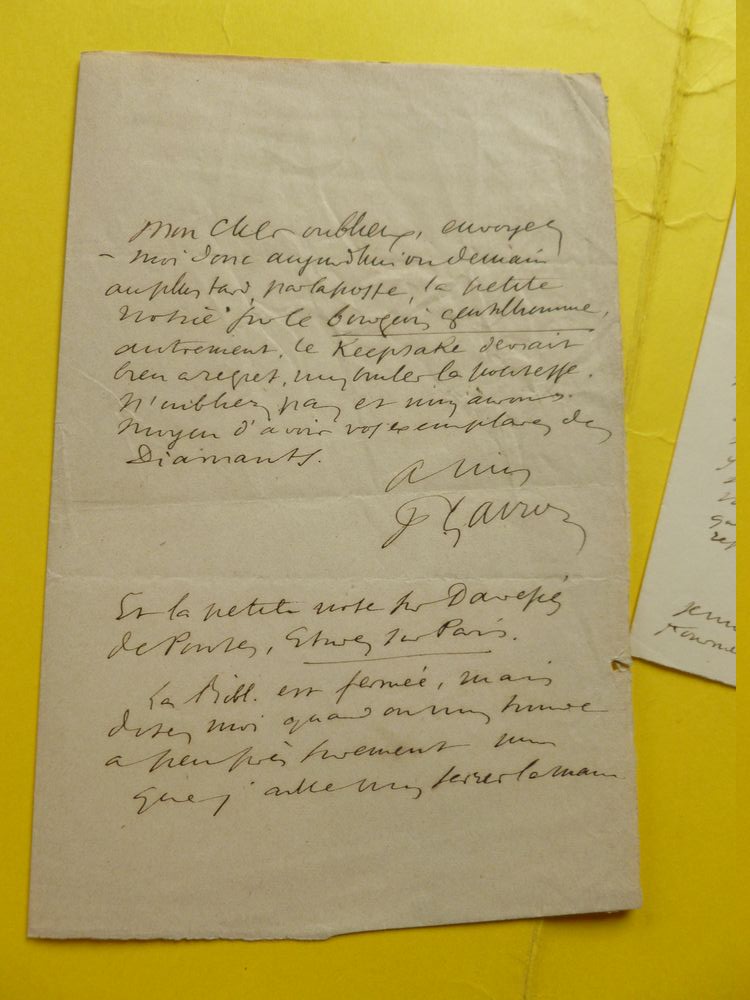 Mon cher oublieux, envoyez
- moi donc aujourd'hui ou demain
au plus tard, par la poste, la petite
notice sur le bourgeois gentilhomme,
autrement, le Keepsake devrait
bien a regret, vous bruler la politesse.
N'oubliez pas et nous aurons
moyen d'avoir vos exemplaires des
Diamants.
a vous
Et la petite note sur Davesiés
de Pontes, Etudes sur Paris.
La Bibl. est fermée, mais
dites moi quand on vous trouve
a peu près surement pour
que j'aille vous serrer la main